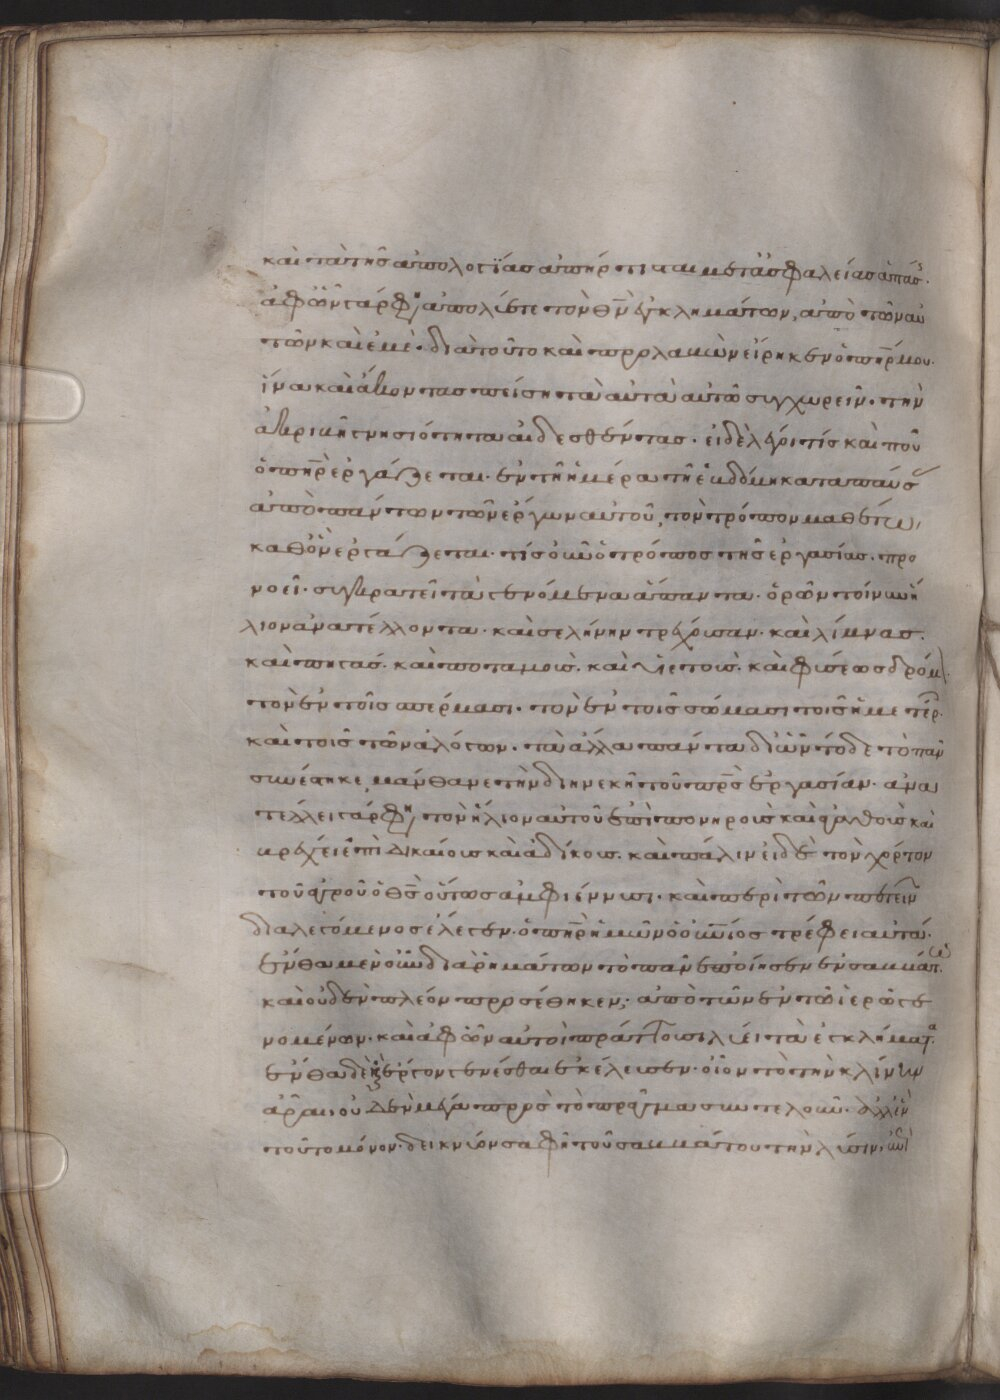 καὶ τὰ τῆς ἀπολογίας ἀπήρτισται μετὰ ἀσφαλείας ἁπάσης·
ἀφ' ὧν γάρ φησι ἀπολύετε τὸν θν ἐγκλημάτων, ἀπὸ τῶν αὐ
τῶν καὶ ἐμέ· διὰ τοῦτο καὶ προλαβὼν εἴρηκεν ὁ πηρ μου·
ἵνα καὶ ἄκοντας πείσῃ τὰ αὐτὰ αὐτῶ συγχωρεῖν· τὴν
ἀκριβῆ γνησιότητα αἰδεσθέντας· εἰ δὲ λέγοι τίς καὶ ποῦ
ὁ πηρ ἐργάζεται· ἐν τῆ ἡμέρα τῆ ἑβδόμη καταπαύσας
ἀπὸ πάντων τῶν ἔργων αὐτοῦ, τὸν τρόπον μαθέτω,
καθ' ὃν ἐργάζεται· τίς οὖν ὁ τρόπος τῆς ἐργασίας· προ
νοεῖ· συγκρατεῖ τὰ γενόμενα ἅπαντα· ὁρῶν τοίνυν ἥ
λιον ἀνατέλλοντα· καὶ σελήνην τρέχουσαν· καὶ λίμνας·
καὶ πηγάς· καὶ ποταμούς· καὶ ὑετούς· καὶ φύσεως δρόμον·
τὸν ἐν τοῖς σπέρμασι· τὸν ἐν τοῖς σώμασι τοῖς ἡμετέροις
καὶ τοῖς τῶν ἀλόγων· τὰ ἄλλα πάντα δι' ὧν τόδε τὸ πᾶν
συνέστηκε, μάνθανε τὴν διηνεκῆ τοῦ πρς ἐργασίαν· ἀνα
τέλλει γάρ φησι τὸν ἥλιον αὐτοῦ ἐπὶ πονηροὺς καὶ ἀγαθοὺς καὶ
βρέχει ἐπὶ δικαίους καὶ ἀδίκους· καὶ πάλιν εἰ δὲ τὸν χόρτον
τοῦ ἀγροῦ ὁ θς οὕτως ἀμφιέννυσι· καὶ περὶ τῶν πετεινῶν
διαλεγόμενος ἔλεγεν· ὁ πηρ ἡμῶν ὁ οὐνιος τρέφει αὐτά·
ἐνθα μὲν οὖν διὰ ῥημάτων τὸ πᾶν ἐποίησεν ἐν σαββάτω
καὶ οὐδὲν πλέον προσέθηκεν· ἀπὸ τῶν ἐν τῶ ἱερῶ γε
νομένων· καὶ ἀφ' ὧν αὐτοὶ πράττουσι λύει τὰ ἐγκλήματα
ἔνθα δὲ καὶ ἔργον γενέσθαι ἐκέλευσεν· οἷον τὸ τὴν κλίνην
ἆραι οὐδὲν μέγα πρὸς τὸ πρᾶγμα συντελοῦν· ἀλλ' ἓν
τοῦτο μόνον· δεικνύον σαφῆ τοῦ σαββάτου τὴν λύσιν·